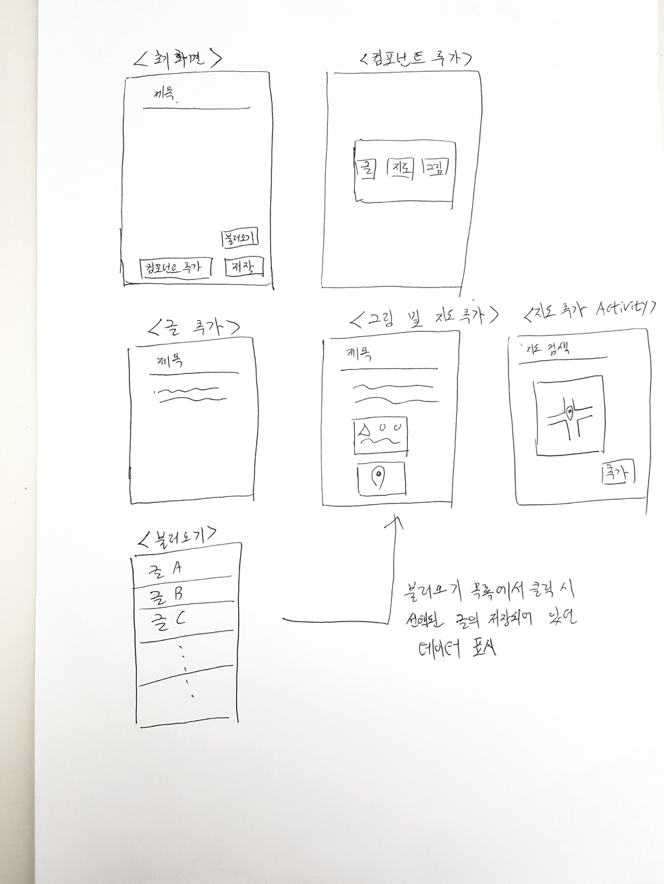 <초기화면>
제목
불러오기
컴포넌트 추가
저장
<컴포넌트 추가>
글
지도
그림
<글 추가>
제목
<그림 및 지도 추가>
제목
<지도 추가 Activity>
지도 검색
추가
<불러오기>
글 A
글 B
글 C
불러오기 목록에서 클릭 시
선택된 글의 저장되어 있던
데이터 표시